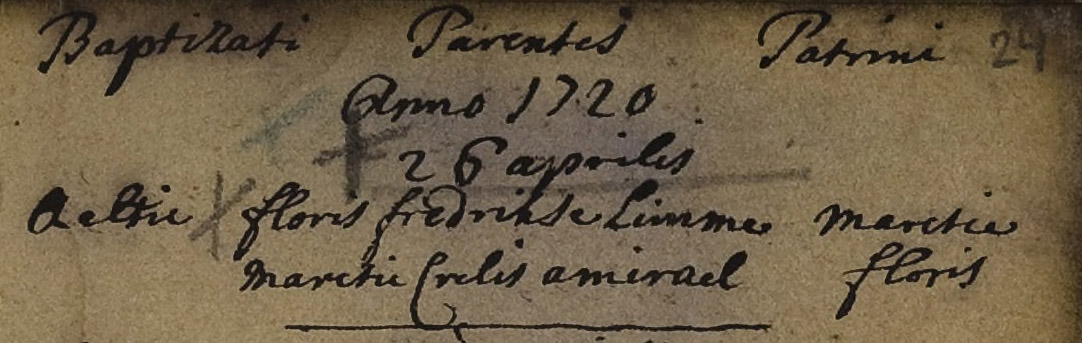 Baptizati Parentes Patrini 24
Anno 1720
26 aprilis
Aeltie floris fredrikse Limme Maretie
Maretie Crelis amirael floris